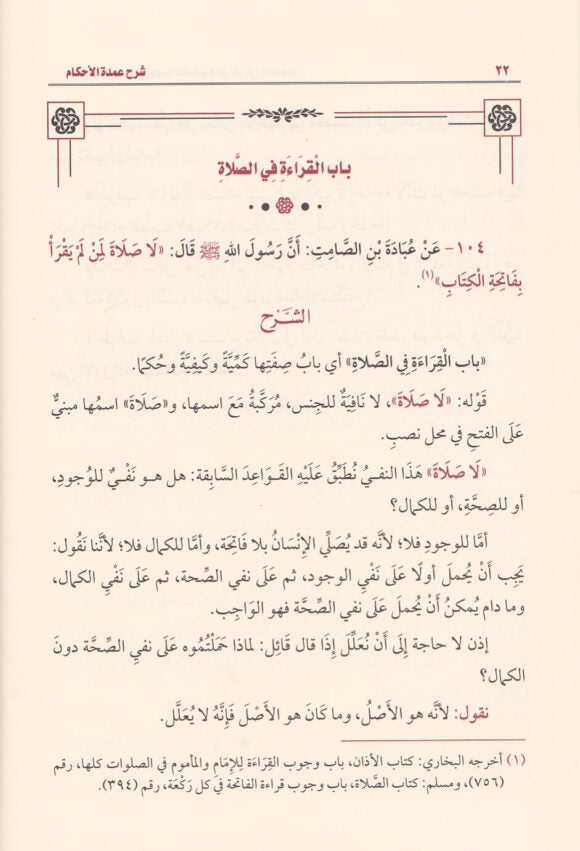 ٢٢
شرح عمدة الأحكام
باب الْقِرَاءَةِ في الصَّلاة
١٠٤- عَنْ عُبَادَةَ بْنِ الصَّامِتِ: أَنَّ رَسُولَ اللهِ ﷺ قَالَ: «لَا صَلَاةَ لِمَنْ لَمْ يَقْرَأْ
بِفَاتِحَةِ الْكِتَابِ»(١).
الشَّرْح
«باب القِرَاءَةِ فِي الصَّلَاةِ» أي بابُ صِفَتِها كَمِّيَّةً وَكَيفِيَّةً وحُكمًا.
قَوْله: «لَا صَلَاةَ»، لا نَافِيَةٌ للجِنس، مُرَكَّبةٌ مَعَ اسمها، و«صَلَاةَ» اسمُها مبنيٌّ
عَلَى الفتحِ في محل نصبٍ.
«لَا صَلَاةَ» هَذَا النفيُ نُطبِّقُ عَلَيْهِ القَوَاعدَ السَّابِقة: هل هو نَفْيٌ للوُجودِ،
أو للصِحَّةِ، أو للكمال؟
أمَّا للوجودِ فلا؛ لأنَّه قد يُصَلِّي الإنْسَانُ بلا فَاتِحَة، وأمَّا للكمال فلا؛ لأنَّنا نَقُول:
يَجِب أَنْ يُحملَ أولًا عَلَى نَفْيِ الوجود، ثم عَلَى نفي الصِّحة، ثم عَلَى نَفْيِ الكمال،
وما دام يُمكنُ أَنْ يُحملَ عَلَى نفي الصِّحَّة فهو الوَاجِب.
إذن لا حاجة إِلَى أَنْ نُعَلِّلَ إِذَا قال قَائِل: لماذا حَمَلْتُمُوه عَلَى نفيِ الصِّحَّة دونَ
الكمال؟
نقول: لأنَّه هو الأَصْلُ، وما كانَ هو الأَصْلَ فَإِنَّهُ لا يُعَلَّل.
(١) أخرجه البخاري: كتاب الأذان، باب وجوب القِرَاءَة لِلإِمَامِ والمأموم في الصلوات كلها، رقم
(٧٥٦)، ومسلم: كتاب الصَّلاة، باب وجوب قراءة الفاتحة في كل رَكْعَة، رقم (٣٩٤).